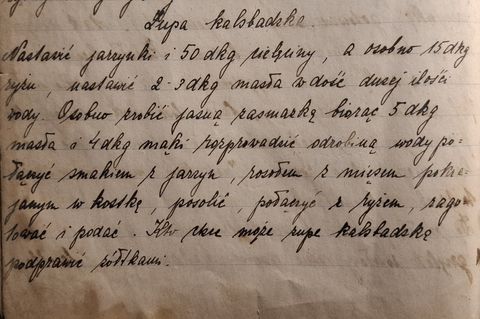 Zupa kalsbadska.
Nastawić jarzynki i 50 dkg cielęciny, a osobno 15 dkg
ryżu, nastawić 2-3 dkg masła w dość dużej ilości
wody. Osobno zrobić jasną zasmażkę biorąc 5 dkg
masła i 4 dkg mąki rozprowadzić odrobiną wody po-
łączyć smakiem z jarzyn, rosołem z mięsem pokra-
janym w kostkę, posolić, połączyć z ryżem, zago-
tować i podać. Kto chce może zupę kalsbadską
podprawić żółtkami.